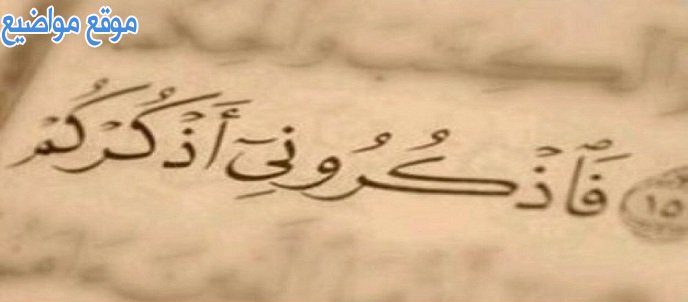 موقع مواضيع
١٥ فَٱذْكُرُونِىٓ أَذْكُرْكُمْ